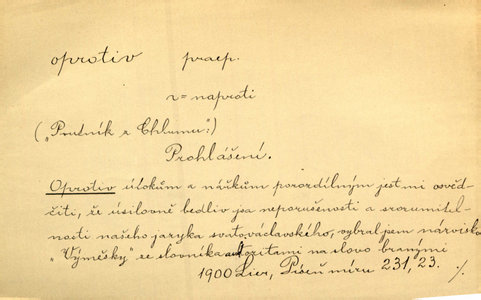 oprotiv praep.
v = naproti
("Prutník z Chlumu":)
Prohlášení.
Oprotiv útokům a nářkům poroždílným jest mi osvěd-
čiti, že úsilovně bedliv jsa neporušenosti a srozumitel-
nosti našeho jazyka svatováclavského, vybral jsem názvisko
„Výměšky se slovníka autoritami na slovo branými
1900 Lier, Píseň míru 231, 23. %